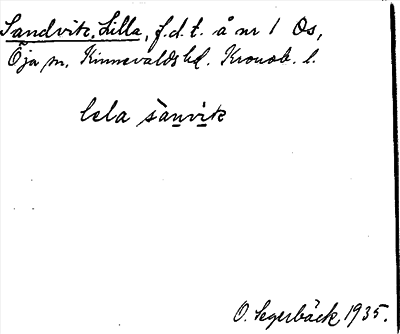 Sandvik, Lilla, f.d.t. å nr 1 Os,
Öja sn, Kinnevalds hd. Kronob. l.
lela sànvik
O. Segerbäck 1935.